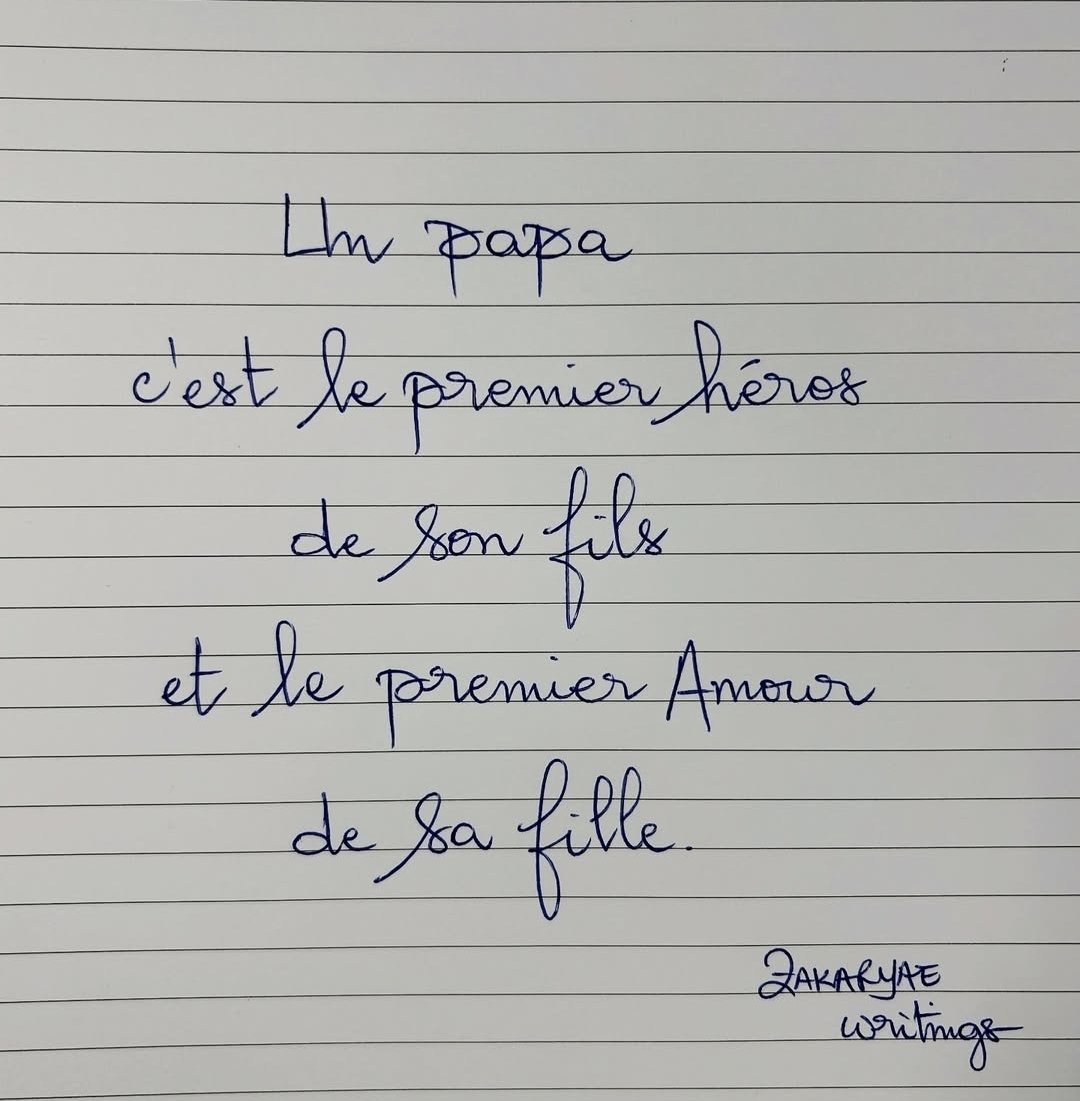 Un papa
c'est le premier héros
de son fils
et le premier Amour
de sa fille.
ZAKARYAE
writings